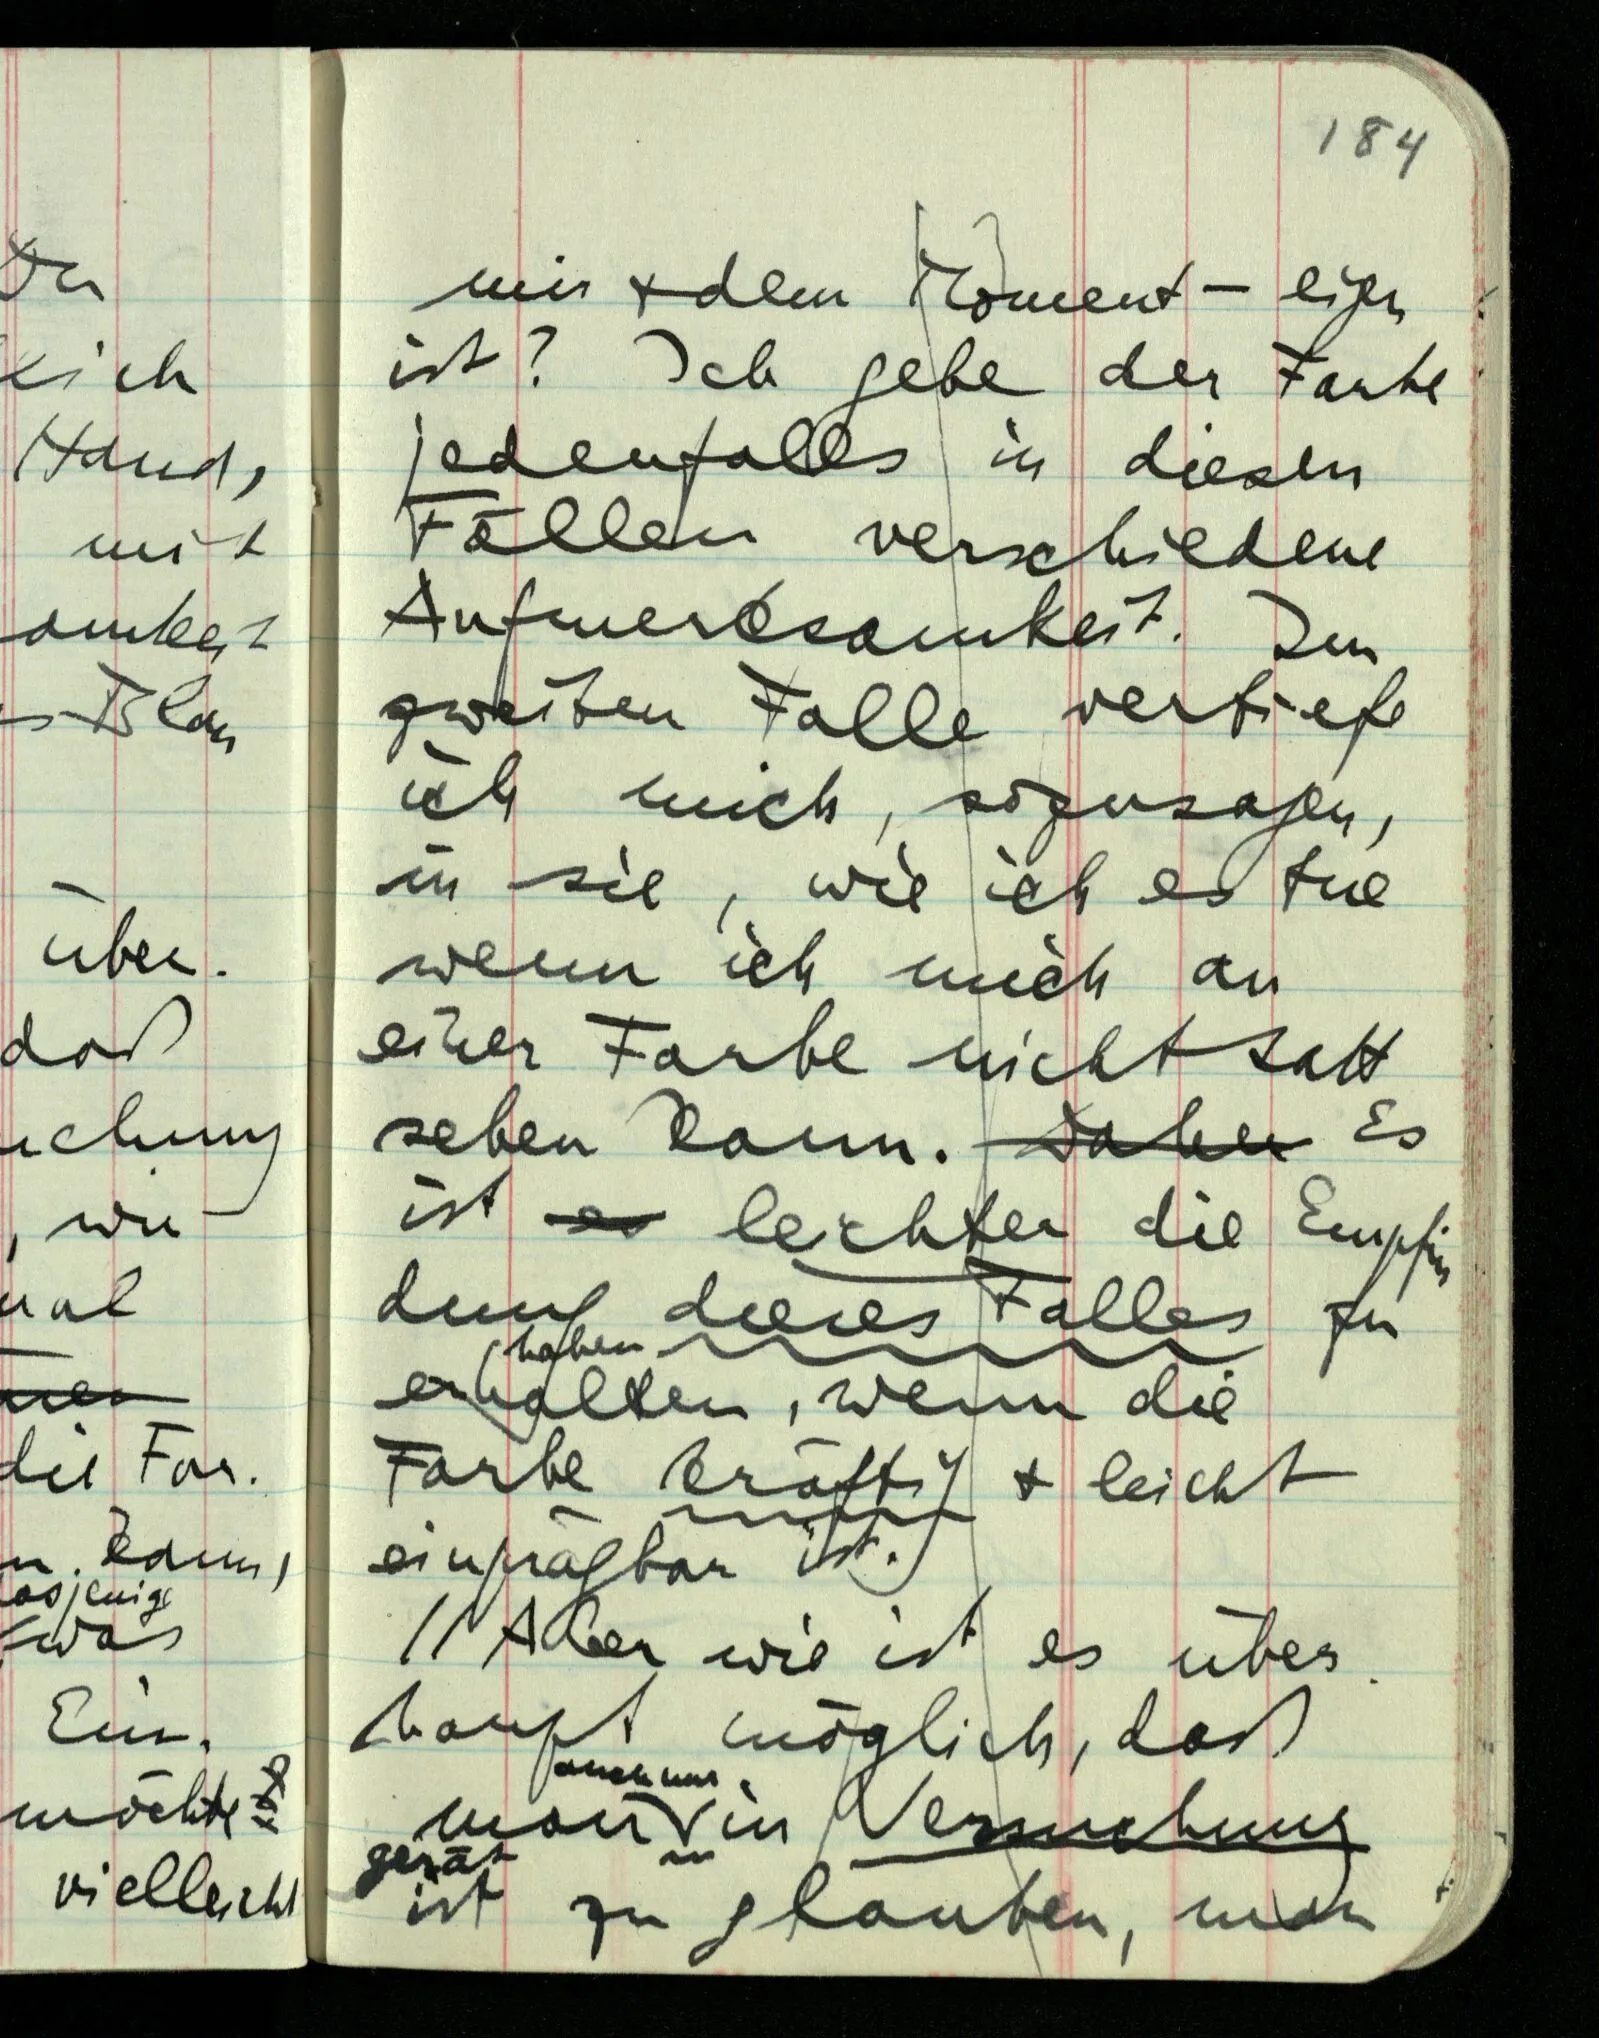 184
mir & dem Moment – eigen
ist? Ich gebe der Farbe
jedenfalls in diesen
Fällen verschiedene
Aufmerksamkeit. Im
zweiten Falle vertiefe
ich mich, sozusagen,
in sie, wie ich es tue
wenn ich mich an
einer Farbe nicht satt
sehen kann. Daher Es
ist es leichter die Empfin
dung dieses Falles zu
haben
erhalten, wenn die
Farbe kräftig & leicht
einprägbar ist.
// Aber wie ist es über
haupt möglich, daß
auch nur
man in Versuchung
gerät
ist zu glauben, man
Hand,
mit
Blau
über.
daß
, wie
die Far.
kann,
dasjenige
was
Ein.
möchte
vielleicht